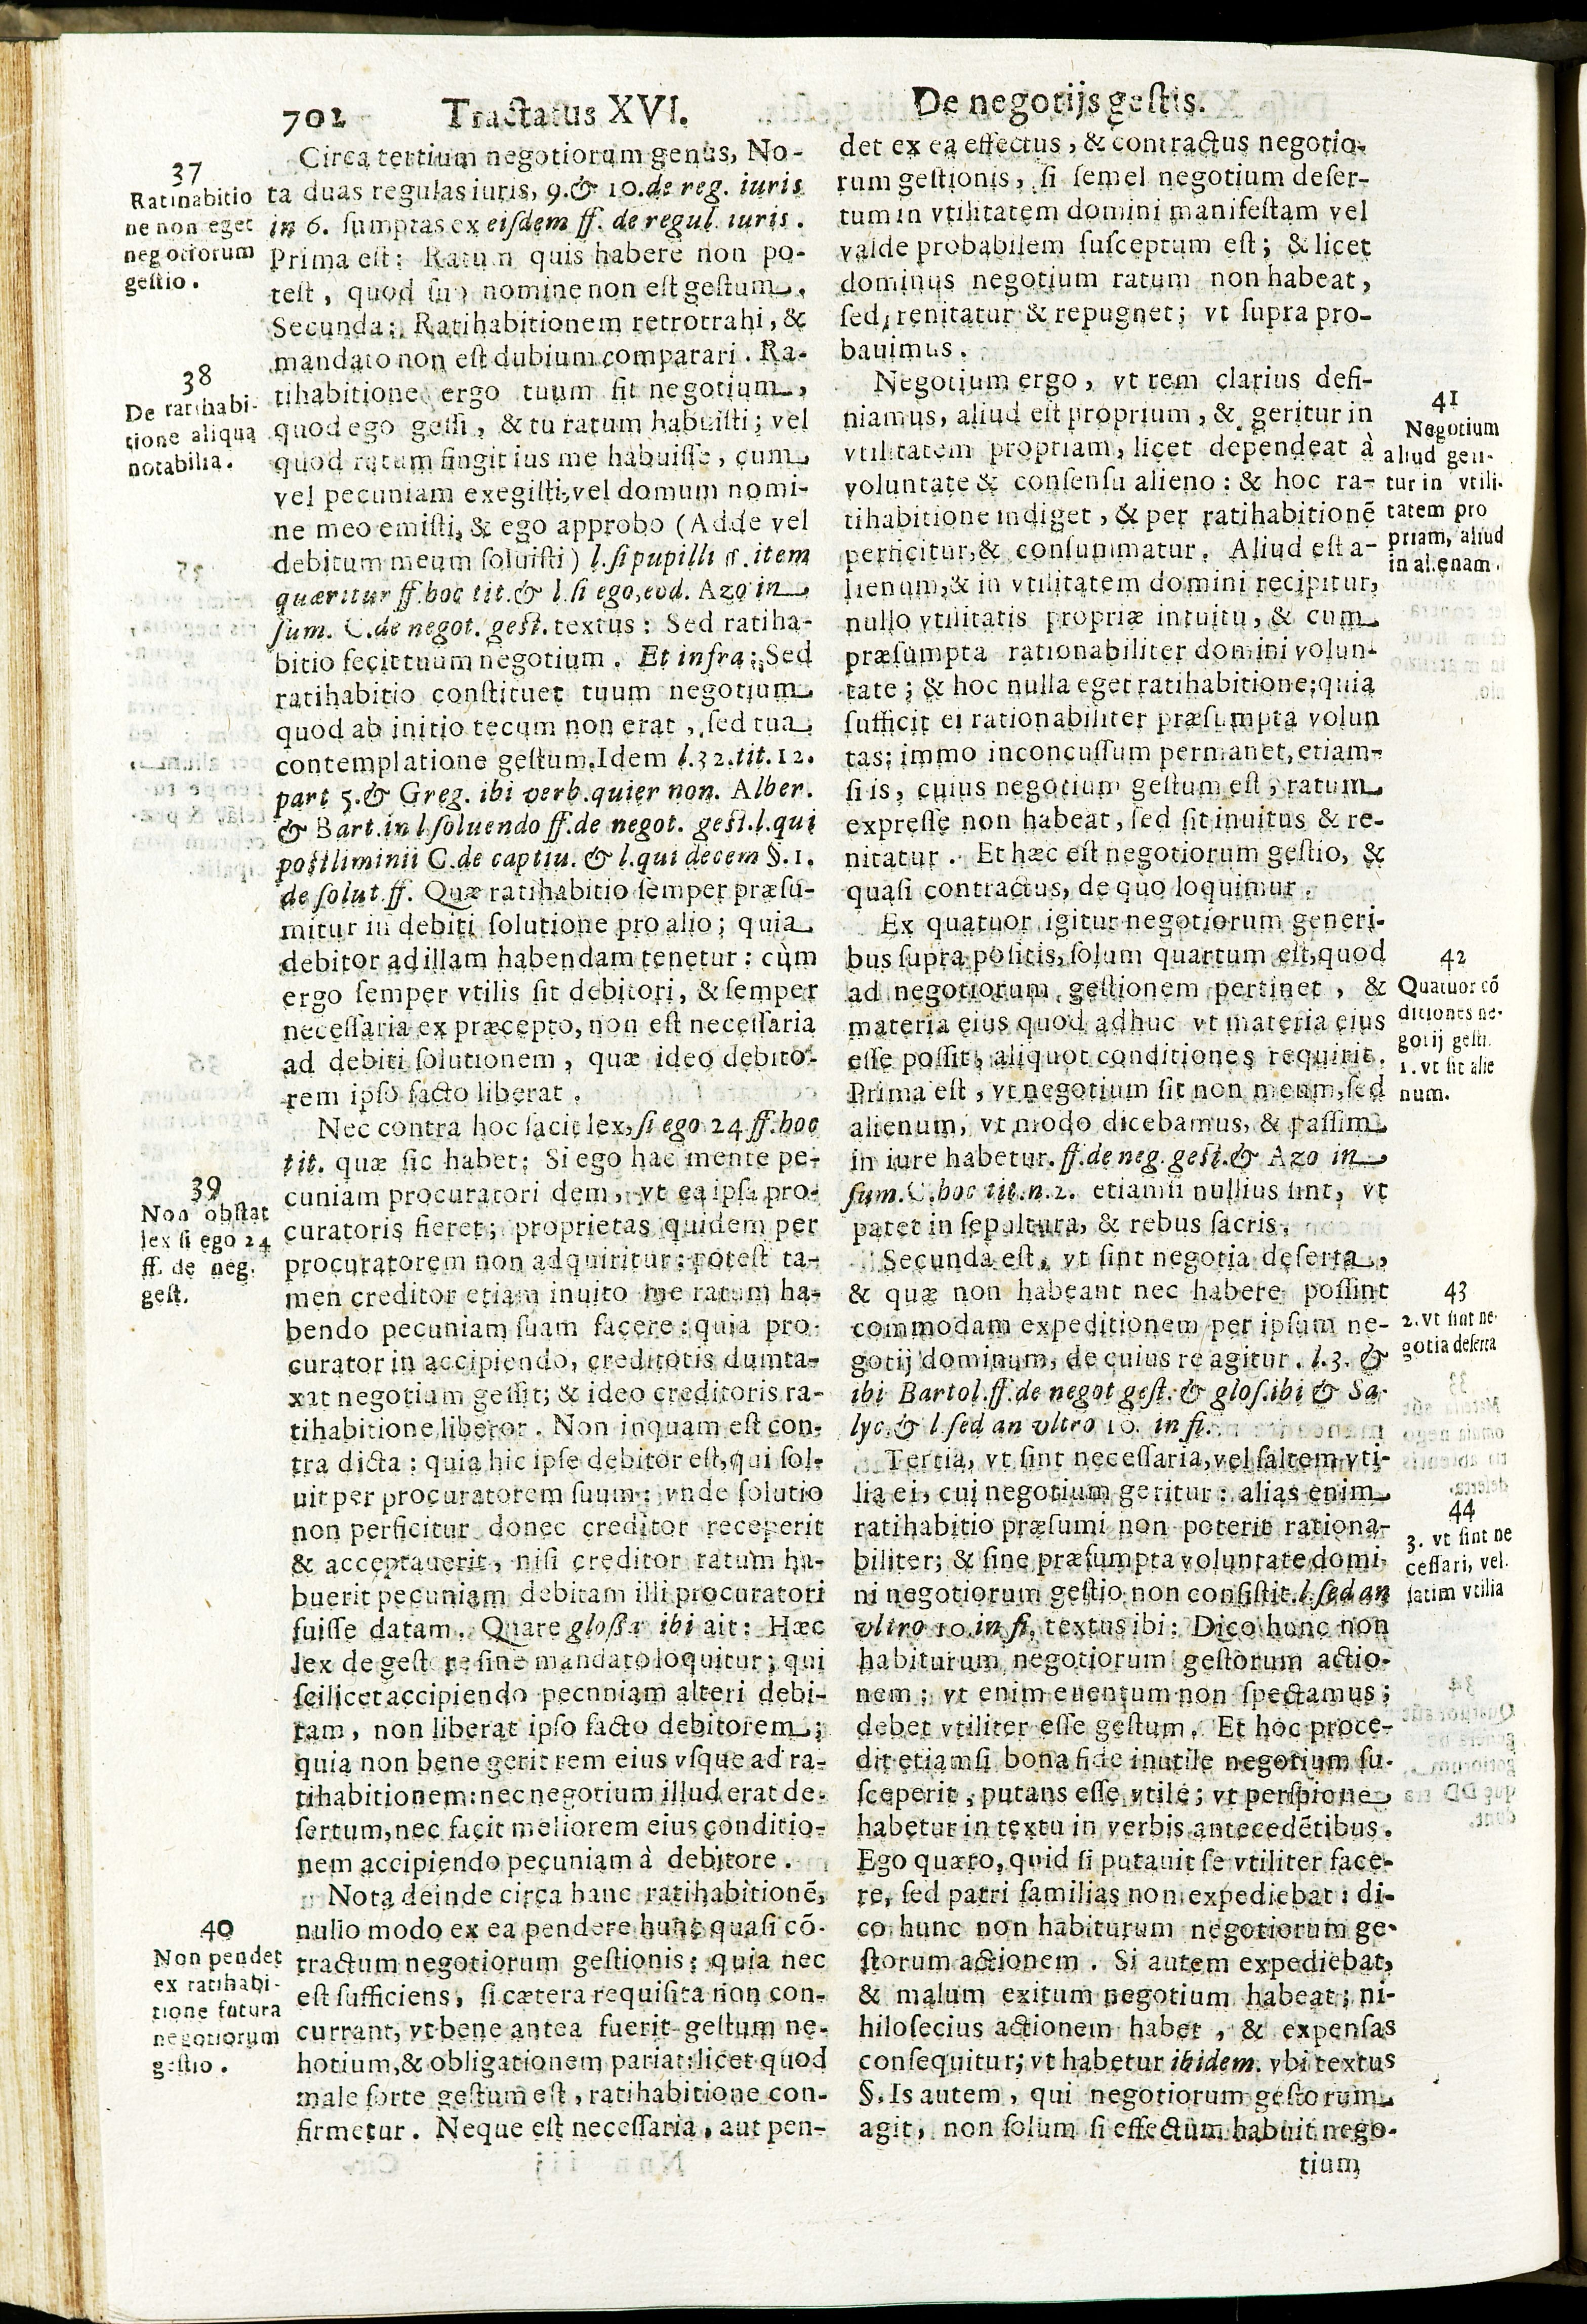 702 Tractatus XVI. De negotijs gestis.
37
Ratihabitio
ne non eget
negotiorum
gestio.
38
De ratihabi-
tione aliqua
notabilia.
39
Non obstat
lex si ego 24
ff. de neg.
gest.
40
Non pendet
ex ratihabi-
tione futura
negotiorum
gestio.
Circa tertium negotiorum genus, No-
ta duas regulas iuris, 9. & 10. de reg. iuris
in 6. sumptas ex eisdem ff. de regul. iuris.
Prima est: Ratum quis habere non po-
test, quod suo nomine non est gestum.
Secunda: Ratihabitionem retrotrahi, &
mandato non est dubium comparari. Ra-
tihabitione ergo tuum fit negotium,
quod ego gessi, & tu ratum habuisti; vel
quod ratum fingit ius me habuisse, cum
vel pecuniam exegisti, vel domum nomi-
ne meo emisti, & ego approbo (Adde vel
debitum meum soluisti) l. si pupilli §. item
quæritur ff. hoc tit. & l. si ego, eod. Azo in
sum. C. de negot. gest. textus: Sed ratiha-
bitio fecit tuum negotium. Et infra: Sed
ratihabitio constituet tuum negotium
quod ab initio tecum non erat, sed tua
contemplatione gestum. Idem l. 32. tit. 12.
part 5. & Greg. ibi verb. quier non. Alber.
& Bart. in l. soluendo ff. de negot. gest. l. qui
postliminii C. de captiu. & l. qui decem §. 1.
de solut. ff. Quæ ratihabitio semper præsu-
mitur in debiti solutione pro alio; quia
debitor ad illam habendam tenetur: cùm
ergo semper vtilis sit debitori, & semper
necessaria ex præcepto, non est necessaria
ad debiti solutionem, quæ ideo debito-
rem ipso facto liberat.
Nec contra hoc facit lex, si ego 24 ff. hoc
tit. quæ sic habet: Si ego hac mente pe-
cuniam procuratori dem, vt ea ipsa pro-
curatoris fieret; proprietas quidem per
procuratorem non adquiritur: potest ta-
men creditor etiam inuito me ratum ha-
bendo pecuniam suam facere: quia pro-
curator in accipiendo, creditoris dumta-
xat negotium gessit; & ideo creditoris ra-
tihabitione liberor. Non inquam est con-
tra dicta: quia hic ipse debitor est, qui sol-
uit per procuratorem suum: vnde solutio
non perficitur donec creditor receperit
& acceptauerit, nisi creditor ratum ha-
buerit pecuniam debitam illi procuratori
fuisse datam. Quare glossa ibi ait: Hæc
lex de gestore sine mandato loquitur; qui
scilicet accipiendo pecnniam alteri debi-
tam, non liberat ipso facto debitorem;
quia non bene gerit rem eius vsque ad ra-
tihabitionem: nec negotium illud erat de-
sertum, nec facit meliorem eius conditio-
nem accipiendo pecuniam à debitore.
Nota deinde circa hanc ratihabitionẽ,
nullo modo ex ea pendere hunc quasi cõ-
tractum negotiorum gestionis; quia nec
est sufficiens, si cætera requisita non con-
currant, vt bene antea fuerit gestum ne-
hotium, & obligationem pariat: licet quod
male forte gestum est, ratihabitione con-
firmetur. Neque est necessaria, aut pen-
det ex ea effectus, & contractus negotio-
rum gestionis, si semel negotium deser-
tum in vtilitatem domini manifestam vel
valde probabilem susceptum est; & licet
dominus negotium ratum non habeat,
sed, renitatur & repugnet; vt supra pro-
bauimus.
Negotium ergo, vt rem clarius defi-
niamus, aliud est proprium, & geritur in
vtilitatem propriam, licet dependeat à
voluntate & consensu alieno: & hoc ra-
tihabitione indiget, & per ratihabitionẽ
perficitur, & consummatur. Aliud est a-
lienum, & in vtilitatem domini recipitur,
nullo vtilitatis propriæ intuitu, & cum
præsumpta rationabiliter domini volun-
tate; & hoc nulla eget ratihabitione; quia
sufficit ei rationabiliter præsumpta volun
tas; immo inconcussum permanet, etiam-
si is, cuius negotium gestum est, ratum
expresse non habeat, sed sit inuitus & re-
nitatur. Et hæc est negotiorum gestio, &
quasi contractus, de quo loquimur.
Ex quatuor igitur negotiorum generi-
bus supra positis, solum quartum est, quod
ad negotiorum gestionem pertinet, &
materia eius quod adhuc vt materia eius
esse possit, aliquot conditiones requirit.
Prima est, vt negotium sit non meum, sed
alienum, vt modo dicebamus, & passim
in iure habetur. ff. de neg. gest. & Azo in
sum. C. hoc tit. n. 2. etiamsi nullius sint, vt
patet in sepultura, & rebus sacris.
Secunda est, vt sint negotia deserta,
& quæ non habeant nec habere possint
commodam expeditionem per ipsum ne-
gotij dominum, de cuius re agitur. l. 3. &
ibi Bartol. ff. de negot gest. & glos. ibi & Sa-
lyc. & l. sed an vltro 10. in fi.
Tertia, vt sint necessaria, vel saltem vti-
lia ei, cui negotium geritur: alias enim
ratihabitio præsumi non poterit rationa-
biliter; & sine præsumpta voluntate domi-
ni negotiorum gestio non consistit. l. sed an
vltro 10. in fi. textus ibi: Dico hunc non
habiturum negotiorum gestorum actio-
nem; vt enim euentum non spectamus;
debet vtiliter esse gestum. Et hoc proce-
dit etiamsi bona fide inutile negotium su-
sceperit, putans esse vtile; vt perspione
habetur in textu in verbis antecedẽtibus.
Ego quæro, quid si putauit se vtiliter face-
re, sed patri familias non expediebat: di-
co hunc non habiturum negotiorum ge-
storum actionem. Si autem expediebat,
& malum exitum negotium habeat; ni-
hilosecius actionem habet, & expensas
consequitur; vt habetur ibidem. vbi textus
§. Is autem, qui negotiorum gestorum
agit, non solum si effectum habuit nego-
tium
41
Negotium
aliud geri-
tur in vtili-
tatem pro
priam, aliud
in alienam.
42
Quatuor cõ
ditiones ne-
gotij gesti.
1. vt sit alie
num.
43
2. vt sint ne-
gotia deserta
44
3. vt sint ne
cessari, vel
satim vtilia